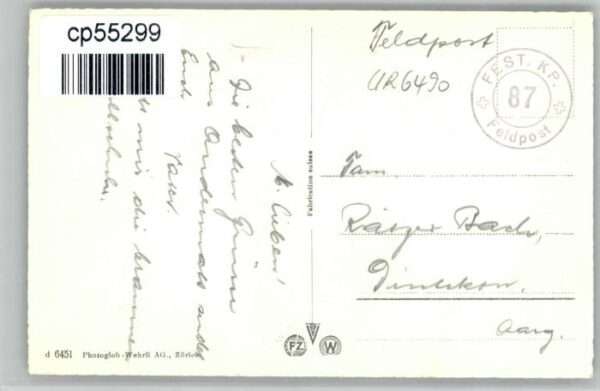 cp55299
Feldpost
UR6490
FEST. KP.
87
Feldpost
M. Lieben!
Die besten Grüsse
aus Andermatt sendet
Euch
Vater.
mir die
Fabrication suisse
Fam.
Bach,
Dintikon.
Aarg.
FZ
W
d 6451 Photoglob-Wehrli AG., Zürich